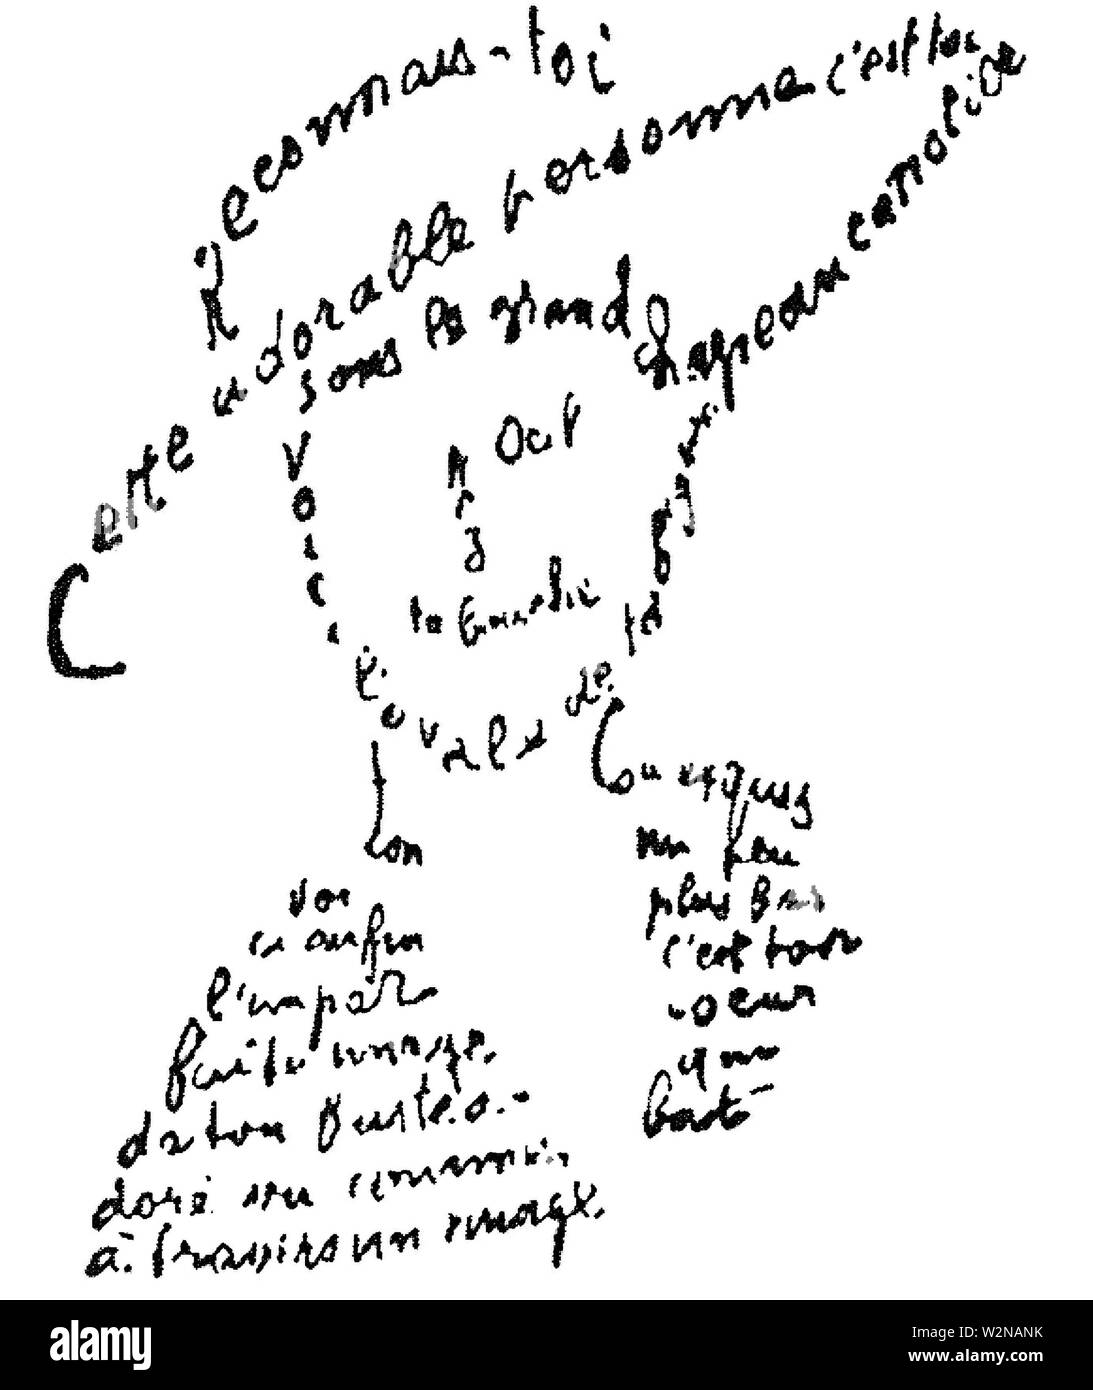 Reconnais-toi
Cette adorable personne c'est toi
sous le grand chapeau canotier
Oeil
Nez
ta bouche
Voici l'ovale de ta figure
ton cou exquis
Voici enfin
l'impar
faite image
de ton buste a
doré vu comme
à travers un nuage
un peu
plus bas
c'est ton
coeur
qui
bat
a alamy
Image ID: W2NANK
www.alamy.com